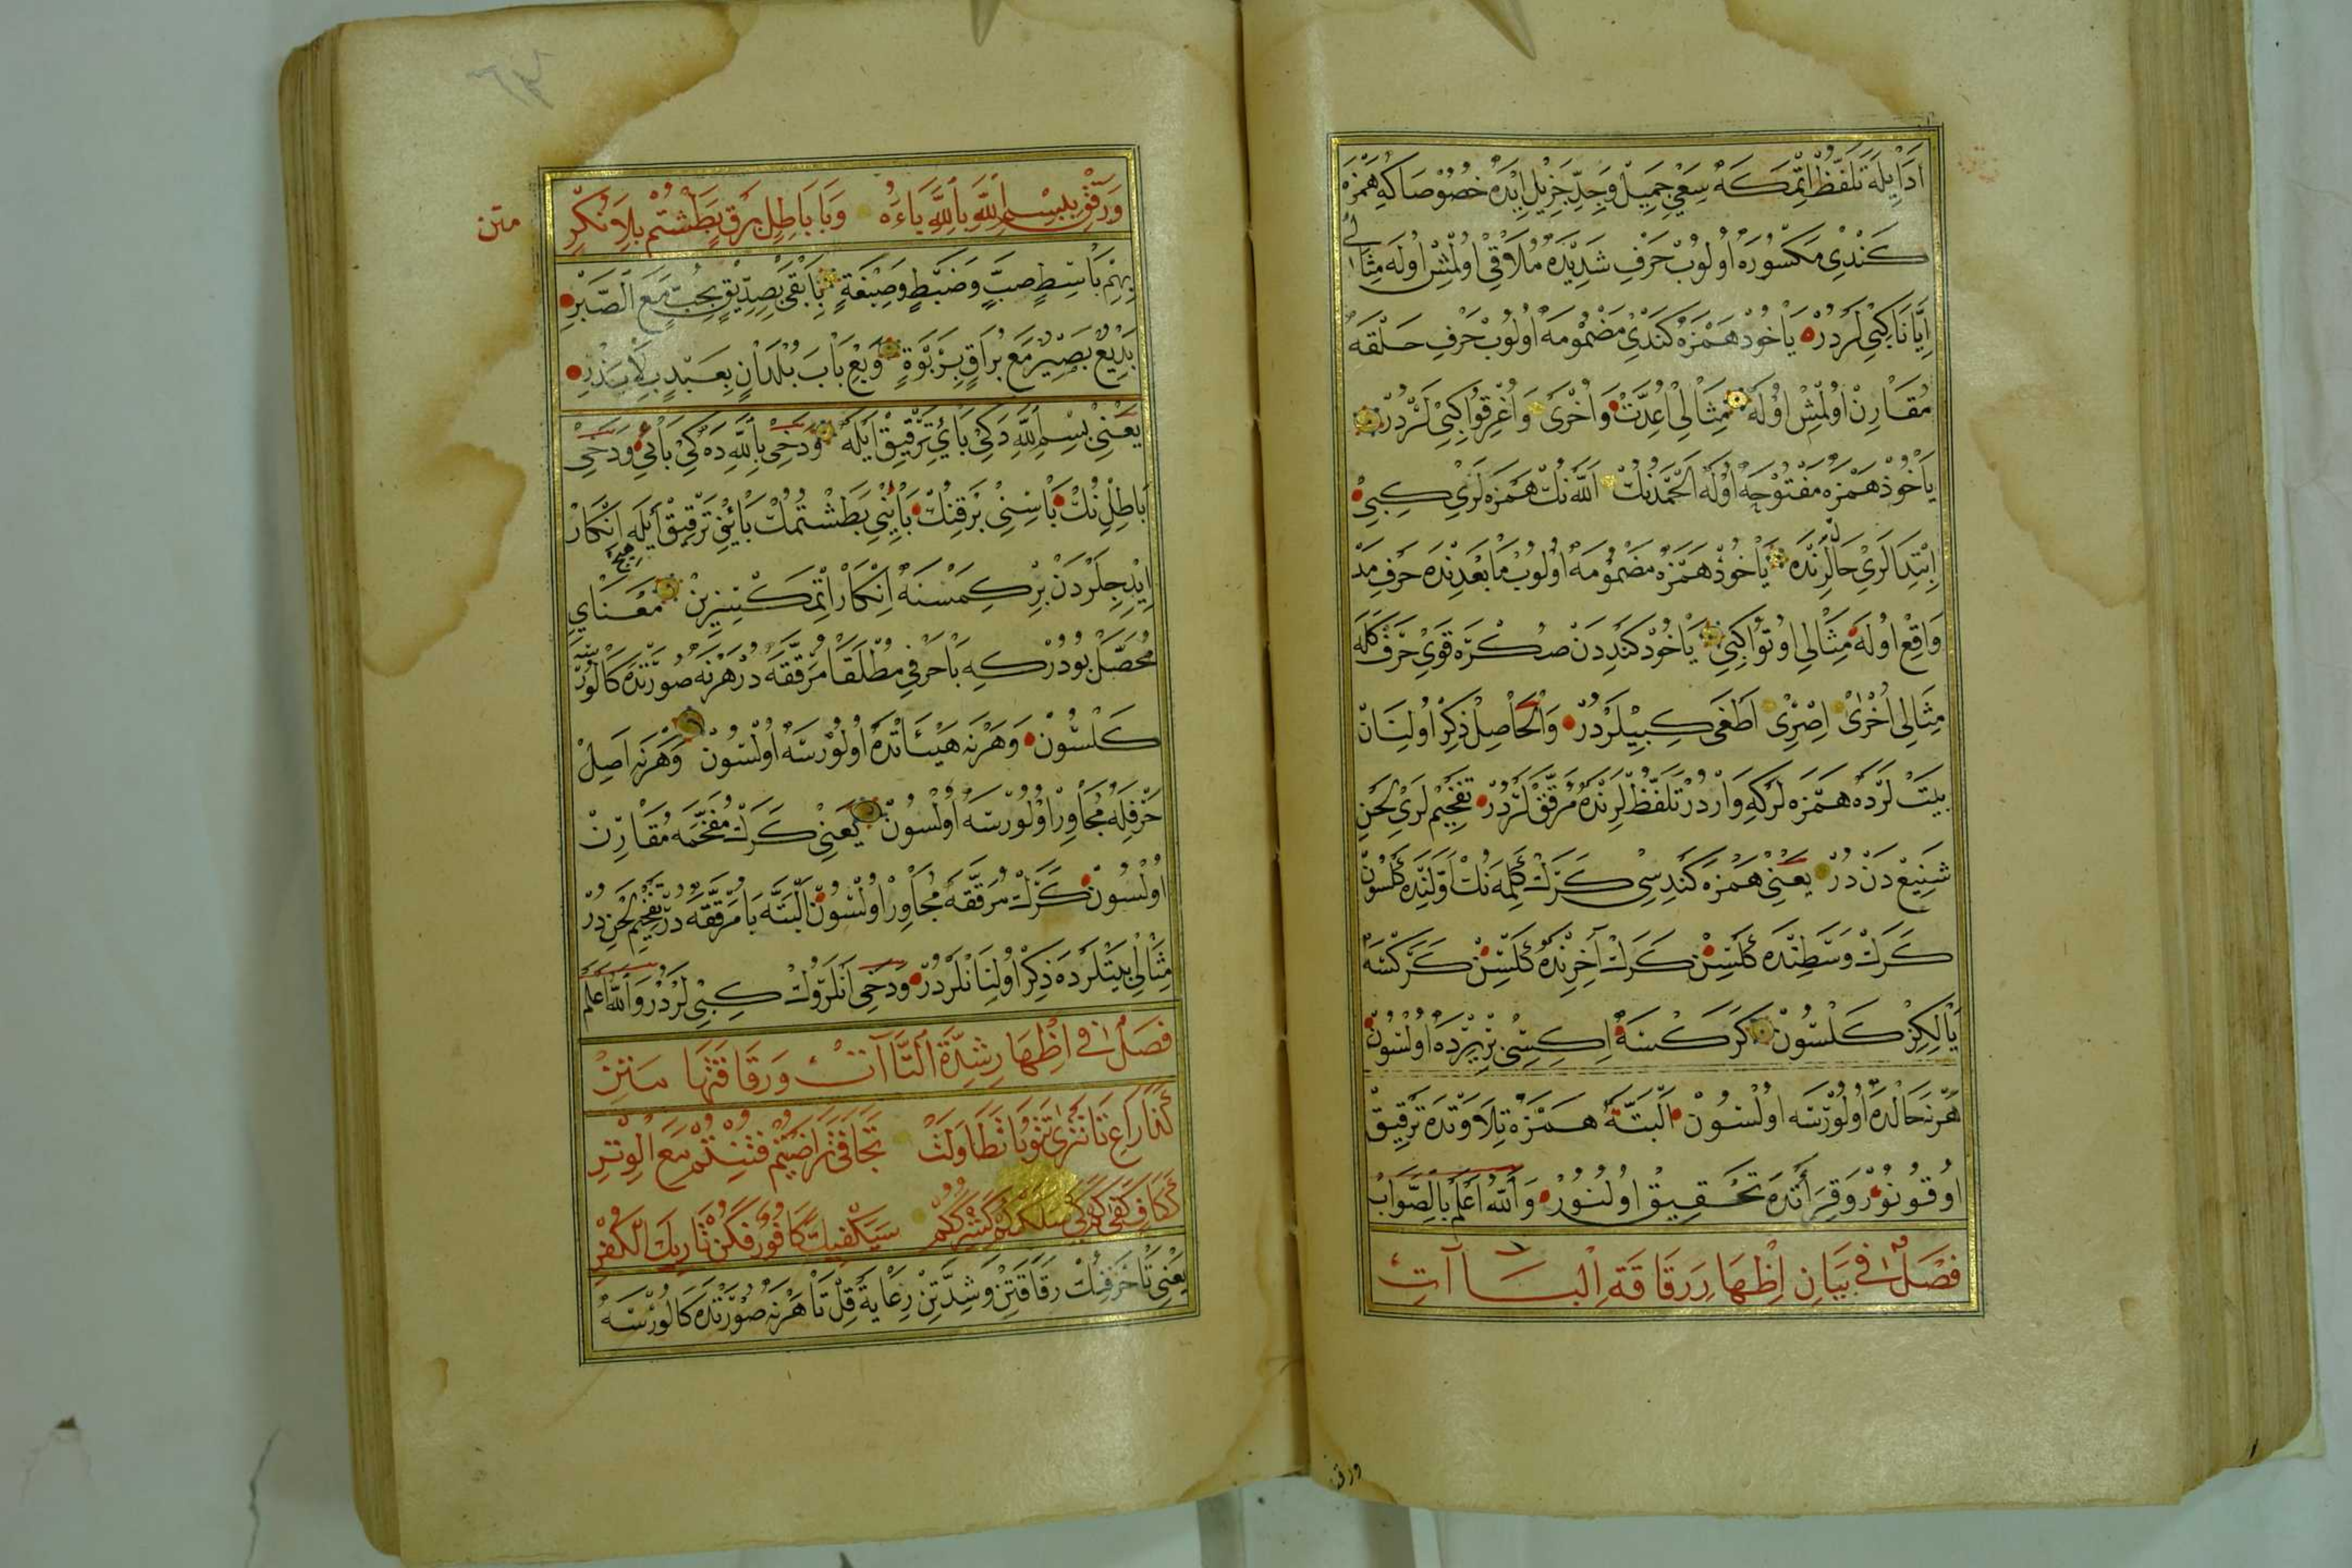 اَدَا اِيلَهْ تَلَفُّظْ اِتْمَكَهْ سَعْىِ جَمِيلْ وَجِدِّ جَزِيلْ اِيْدَهْ خُصُوْصَا كِهْ هَمْزَهْ
كَنْدِى مَكْسُورَهْ اُولُوبْ حَرْفِ شَدِيْدَهْ مُلَاقِى اُولْمِشْ اُولَهْ مِثَالِى
اِيَّانَا كِبِى لَرْدُرْ يَاخُودْ هَمْزَهْ كَنْدِى مَضْمُومَهْ اُولُوبْ حَرْفِ حَلْقَهْ
مُقَارِنْ اُولْمِشْ اُولَهْ مِثَالِى اُعِدَّتْ وَاُخْرٰى وَاُغْرِقُوا كِبِى لَرْدُرْ
يَاخُوذْ هَمْزَهْ مَفْتُوحَهْ اُولَهْ اَلْحَمْدُنُكْ اَللّٰهُ نُكْ هَمْزَهْ لَرِى كِبِى
اِبْتِدَالَرِى حَالْلَرِنْدَهْ يَاخُوذْ هَمْزَهْ مَضْمُومَهْ اُولُوبْ مَا بَعْدِنْدَهْ حَرْفِ مَدْ
وَاقِعْ اُولَهْ مِثَالِى اُوتُوا كِبِى يَاخُودْ كَنْدِدَنْ صُكْرَهْ قَوِى حَرْفْ كَلَهْ
مِثَالِى اُخْرٰى اِصْرِى اَطْغَى كِبِيلَرْدُرْ وَالْحَاصِلْ ذِكْرْ اُولِنَانْ
بَيْتْ لَرْدَهْ هَمْزَهْ لَرْكِهْ وَارْدُرْ تَلَفُّظْ لَرِنْدَهْ مُرَقَّقْ لَرْدُرْ تَفْخِيمْ لَرِى لَحْنِ
شَنِيعْ دَنْ دُرْ يَعْنِى هَمْزَهْ كَنْدِسِى كَرَكْ كَلِمَهْ نُكْ اَوَّلِنْدَهْ كَلْسُونْ
كَرَكْ وَسَطِنْدَهْ كَلْسِنْ كَرَكْ آخِرِنْدَهْ كَلْسِنْ كَرَكْسَهْ
يَالِكِزْ كَلْسُونْ كَرَكْسَهْ اِكِسِى بِرْيِرْدَهْ اُولْسُونْ
هَرْنَهْ حَالْدَهْ اُولُورْسَهْ اُولْسُونْ اَلْبَتَّهْ هَمْزَهْ تِلَاوَتْدَهْ تَرْقِيقْ
اُوقُونُورْ وَقِرَأَتْدَهْ تَحْقِيقْ اُولُنُورْ وَاللّٰهُ اَعْلَمُ بِالصَّوَابْ
فَصْلٌ فِى بَيَانِ اِظْهَارِ رَقَاقَةِ الْبَاآتِ
ورقق
متن
وَرَقِّقْ بِبِسْمِ اللّٰهِ بِاللّٰهِ بَاءَهُ وَبَا بَاطِلٍ بَرْقٍ بَطَشْتُمْ بِلَا نُكْرِ
بِهِمْ بَاسِطٍ صَبٍّ وَضَبْطٍ وَصِبْغَةٍ بِاَبْقٰى بِصِدِّيقٍ بِحُبٍّ مَعَ الصَّبْرِ
بَدِيعٌ بَصِيرٌ مَعَ بُرَاقٍ بِرَبْوَةٍ وَبِعْ بَابَ بُلْدَانٍ بِعَبْدٍ بِلَا بَذْرِ
يَعْنِى بِسْمِ اللّٰهِ دَكِى بَايِ تَرْقِيقْ اَيْلَهْ وَدَخِى بِاللّٰهِ دَهْ كِى بَايِى وَدَخِى
بَاطِلِنُكْ بَاسِنِى بَرْقِنُكْ بَايِنِى بَطَشْتُمُكْ بَايِنِى تَرْقِيقْ اَيْلَهْ اِنْكَارْ
اِيدِجِلَرْدَنْ بِرْ كِمْسَنَهْ اِنْكَارْ اِتْمَكْسِزِينْ مَعْنَاىِ
مُحَصَّلْ بُودُرْكِهْ بَا حَرْفِى مُطْلَقَا مُرَقَّقَهْ دُرْ هَرْنَهْ صُورَتْدَهْ كَالُورْسَهْ
كَلْسُونْ وَهَرْنَهْ هَيْئَاتْدَهْ اُولُورْسَهْ اُولْسُونْ وَهَرْنَهْ اَصِلْ
حَرْفِلَهْ مُجَاوِرْ اُولُورْسَهْ اُولْسُونْ يَعْنِى كَرَكْ مُفَخَّمَهْ مُقَارِنْ
اُولْسُونْ كَرَكْ مُرَقَّقَهْ مُجَاوِرْ اُولْسُونْ اَلْبَتَّهْ بَا مُرَقَّقَهْ دُرْ تَفْخِيمْ لَحْنْ دُرْ
مِثَالِى بَيْتْلَرْدَهْ ذِكْرْ اُولِنَانْلَرْدُرْ وَدَخِى اَنْلَرُوكْ كِبِى لَرْدُرْ وَاللّٰهُ اَعْلَمُ
فَصْلٌ فِى اِظْهَارِ شِدَّةِ التَّاآتِ وَرَقَاقَتِهَا مَتْنْ
كَذَا رَاعِ تَا تَتْرٰى تَتُوبَا تَطَاوَلَتْ تَجَافٰى تَرَاضَيْتُمْ فَتَنْتُمْ مَعَ الْوِتْرِ
سَيَكْفِيكَ كَافُورٌ فَكُنْ تَارِكَ الْكُفْرِ
يَعْنِى تَا حَرْفِنُكْ رَقَاقَتِنْ وَشِدَّتِنْ رِعَايَةْ قِلْ تَا هَرْنَهْ صُورَتْدَهْ كَالُورْسَهْ